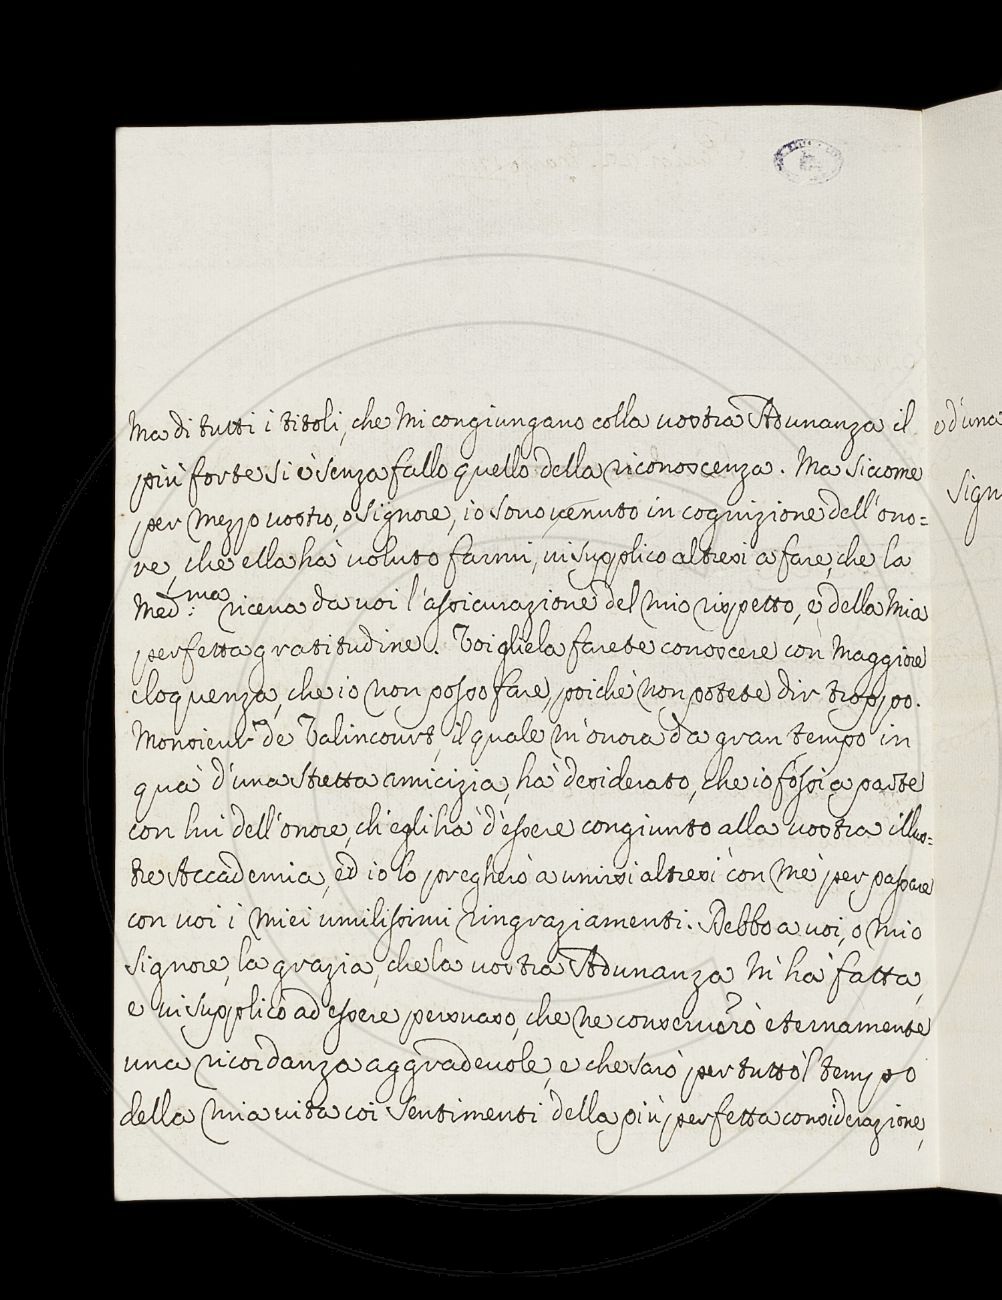 Ma di tutti i titoli, che mi congiungano colla vostra Adunanza il
più forte si è senza fallo quello della riconoscenza. Ma siccome
per mezzo vostro, o Signore, io sono venuto in cognizione dell'ono=
re, che ella hà voluto farmi, vi supplico altresi a fare, che la
Med:ma riceva da voi l'assicurazione del mio rispetto, e della mia
perfetta gratitudine. Voi gliela farete conoscere con maggiore
eloquenza, che io non posso fare, poiche non potete dir troppo.
Monsieur de Valincourt, il quale m'onora da gran tempo in
quà d'una stretta amicizia, hà desiderato, che io fossi a parte
con lui dell'onore, ch'egli hà d'essere congiunto alla vostra illus=
tre Accademia, ed io lo pregherò a unirsi altresì con mè per passare
con voi i miei umilissimi ringraziamenti. Debbo a voi, o mio
Signore, la grazia, che la vostra Adunanza m'hà fatta,
e vi supplico ad essere persuaso, che ne conserverò eternamente
una ricordanza aggradevole, e che sarò per tutto'l tempo
della mia vita coi sentimenti della più perfetta considerazione,
ed una
Sign